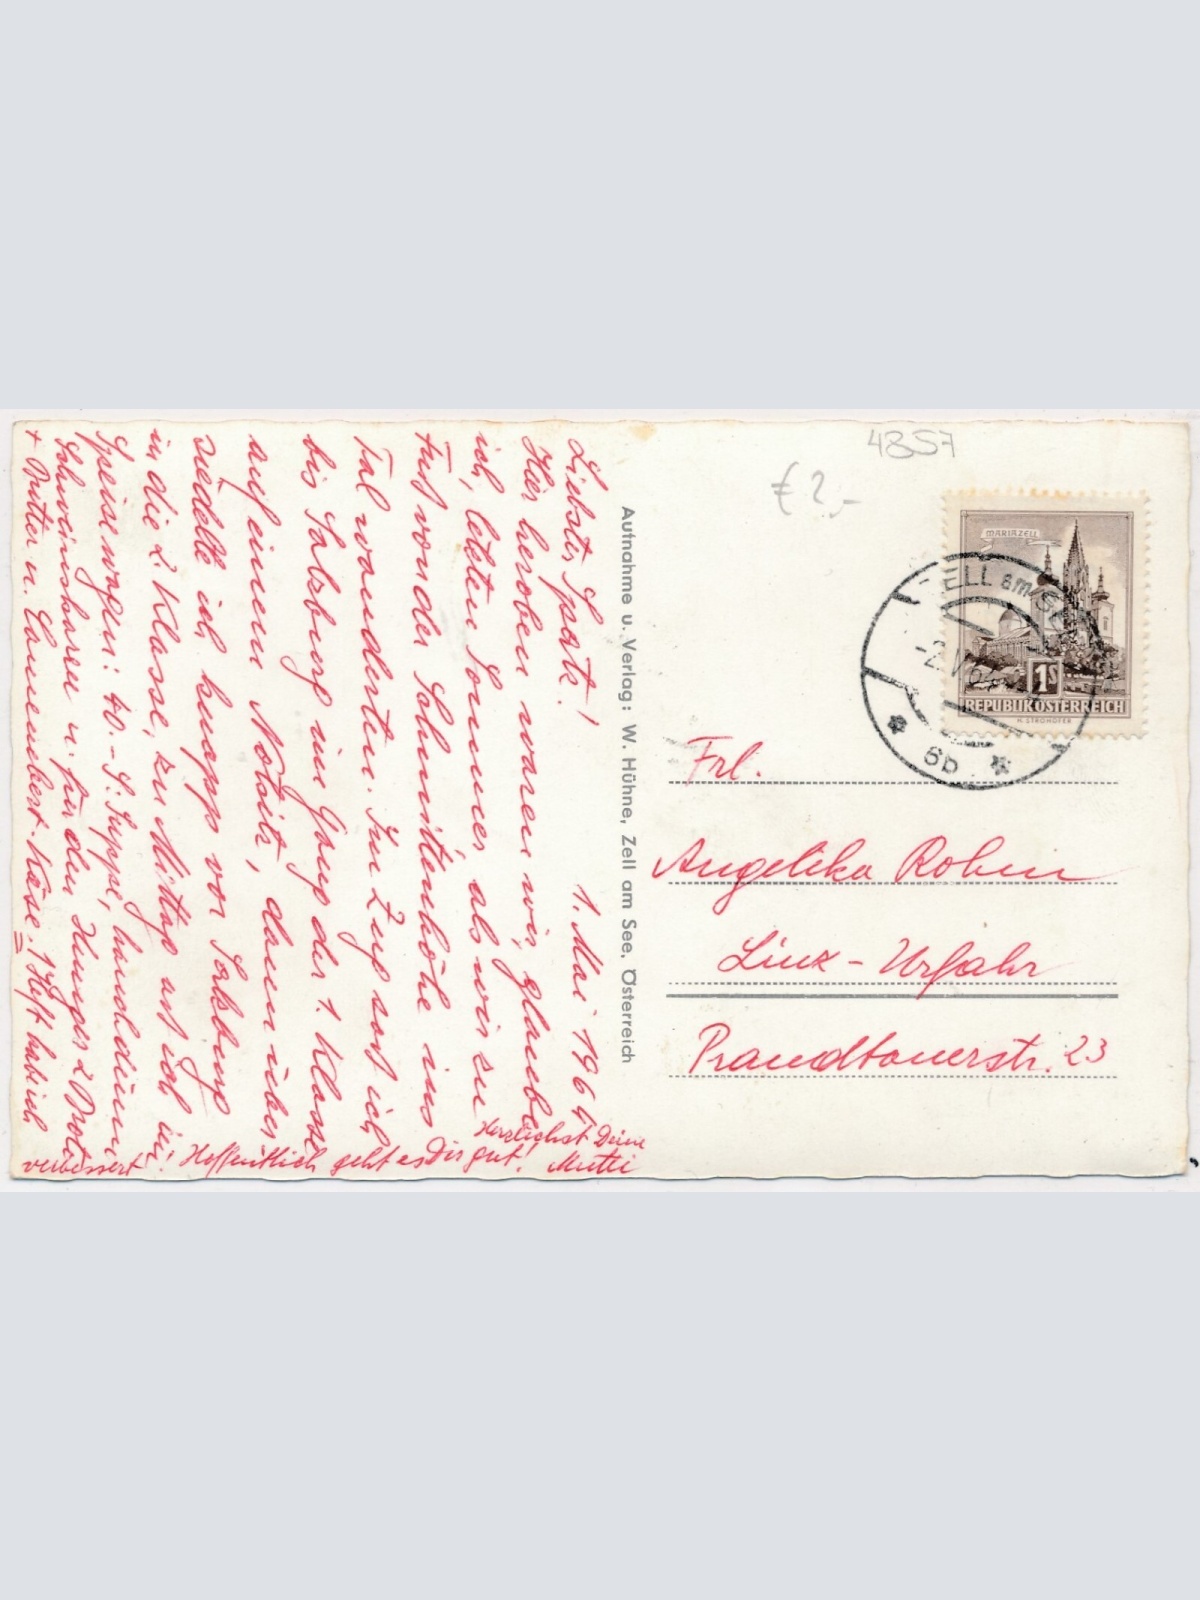 1. Mai 1964
Liebster Spatz!
Hier heroben waren wir, glaube
ich, letzten Sommer, als wir zu
Fuß von der Schmittenhöhe ins
Tal wanderten. Im Zug saß ich
bis Salzburg im Gang der 1. Klasse
auf einem Notsitz, dann über
siedelte ich knapp vor Salzburg
in die 2. Klasse, zu Mittag aß ich im
Speisewagen: 40.- S. Suppe,
Schweinsbraten u. für den Hunger 2 Brote
+ Butter u. Camembert-Käse. 1 Heft hab ich
verbessert! Hoffentlich geht es Dir gut!
Herzlichst Deine
Mutti
Aufnahme u. Verlag: W. Hühne, Zell am See, Österreich
4857
€ 2,-
MARIAZELL
1S
REPUBLIK ÖSTERREICH
H. STROHOFER
ZELL am SEE
-2.V.64
6b
Frl.
Angelika Robin
Linz - Urfahr
Prandtauerstr. 23